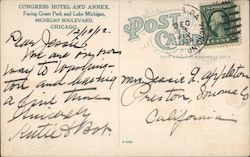 CONGRESS HOTEL AND ANNEX,
Facing Grant Park and Lake Michigan,
MICHIGAN BOULEVARD,
CHICAGO.
POST CARD
12/10/12.
Dear Jessie:
We are on our
way to Washing-
ton and having
a fine time
Sincerely
Mrs Jessie L. Appleton
Preston, Sonoma Co
California